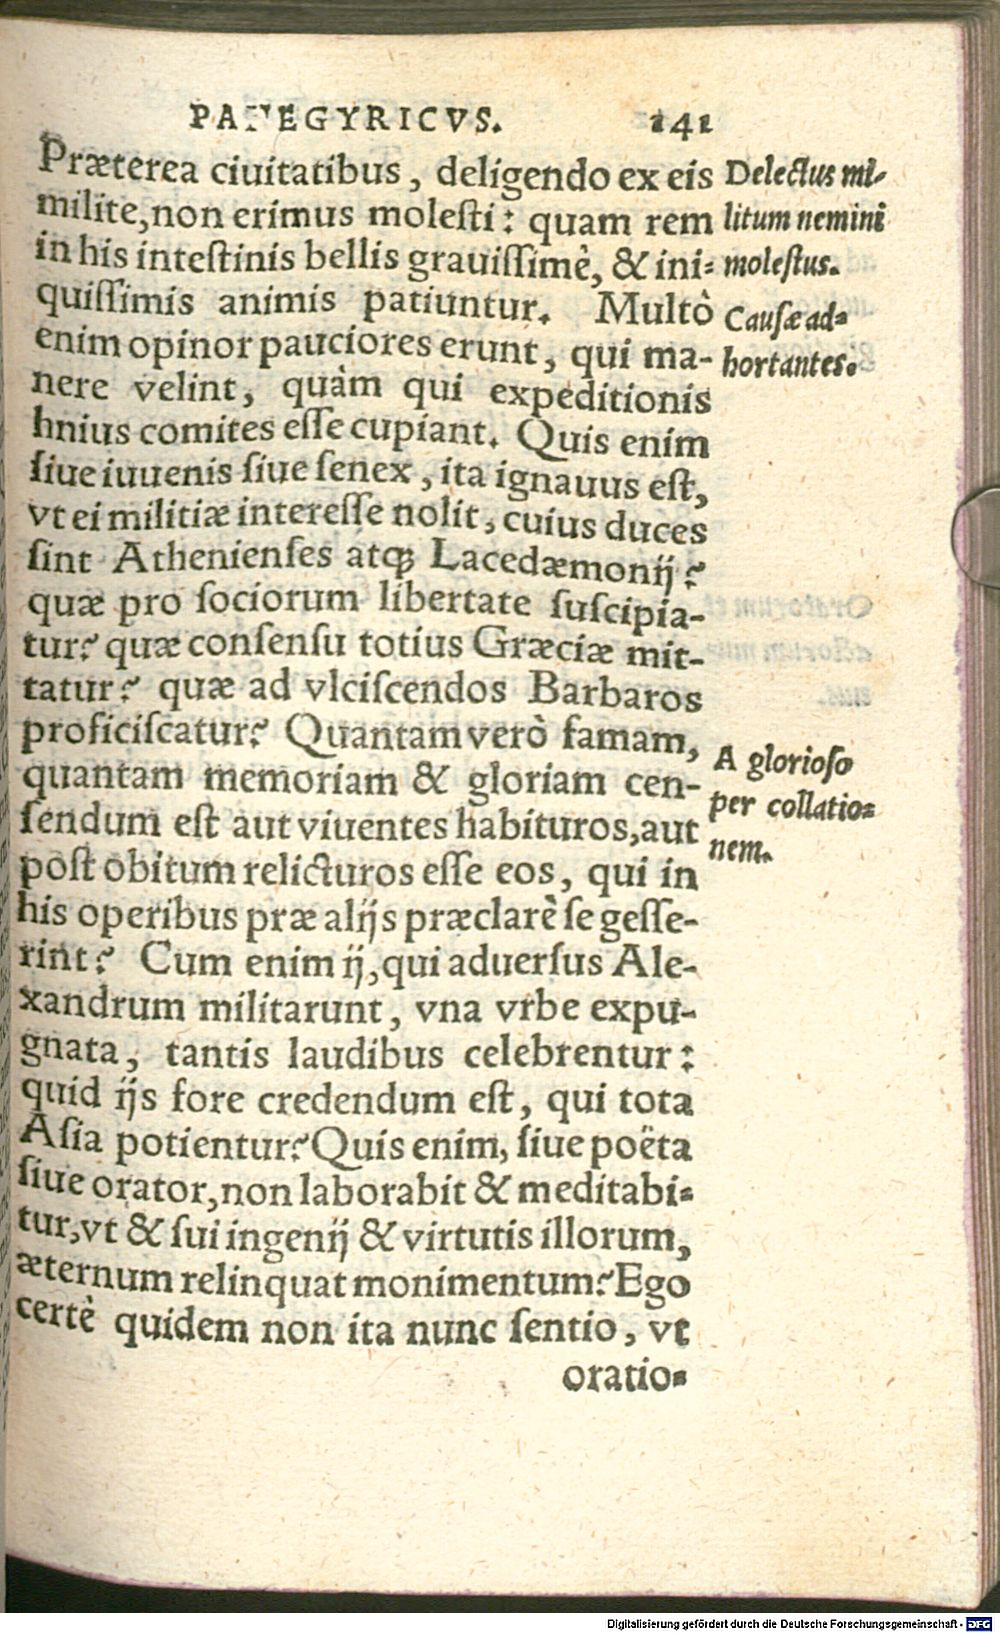 PANEGYRICVS. 141
Præterea ciuitatibus, deligendo ex eis
milite, non erimus moleſti: quam rem
in his inteſtinis bellis grauiſſimè, & ini-
quiſſimis animis patiuntur. Multò
enim opinor pauciores erunt, qui ma-
nere velint, quàm qui expeditionis
huius comites eſſe cupiant. Quis enim
ſiue iuuenis ſiue ſenex, ita ignauus eſt,
vt ei militiæ intereſſe nolit, cuius duces
ſint Athenienſes atqꝫ Lacedæmonij?
quæ pro ſociorum libertate ſuſcipia-
tur? quæ conſenſu totius Græciæ mit-
tatur? quæ ad vlciſcendos Barbaros
proficiſcatur? Quantam verò famam,
quantam memoriam & gloriam cen-
ſendum eſt aut viuentes habituros, aut
poſt obitum relicturos eſſe eos, qui in
his operibus præ alijs præclarè ſe geſſe-
rint? Cum enim ij, qui aduerſus Ale-
xandrum militarunt, vna vrbe expu-
gnata, tantis laudibus celebrentur:
quid ijs fore credendum eſt, qui tota
Aſia potientur? Quis enim, ſiue poëta
ſiue orator, non laborabit & meditabi-
tur, vt & ſui ingenij & virtutis illorum,
æternum relinquat monimentum? Ego
certè quidem non ita nunc ſentio, vt
oratio-
Delectus mi-
litum nemini
moleſtus.
Cauſæ ad-
hortantes.
A glorioſo
per collatio-
nem.
Digitalisierung gefördert durch die Deutsche Forschungsgemeinschaft - DFG